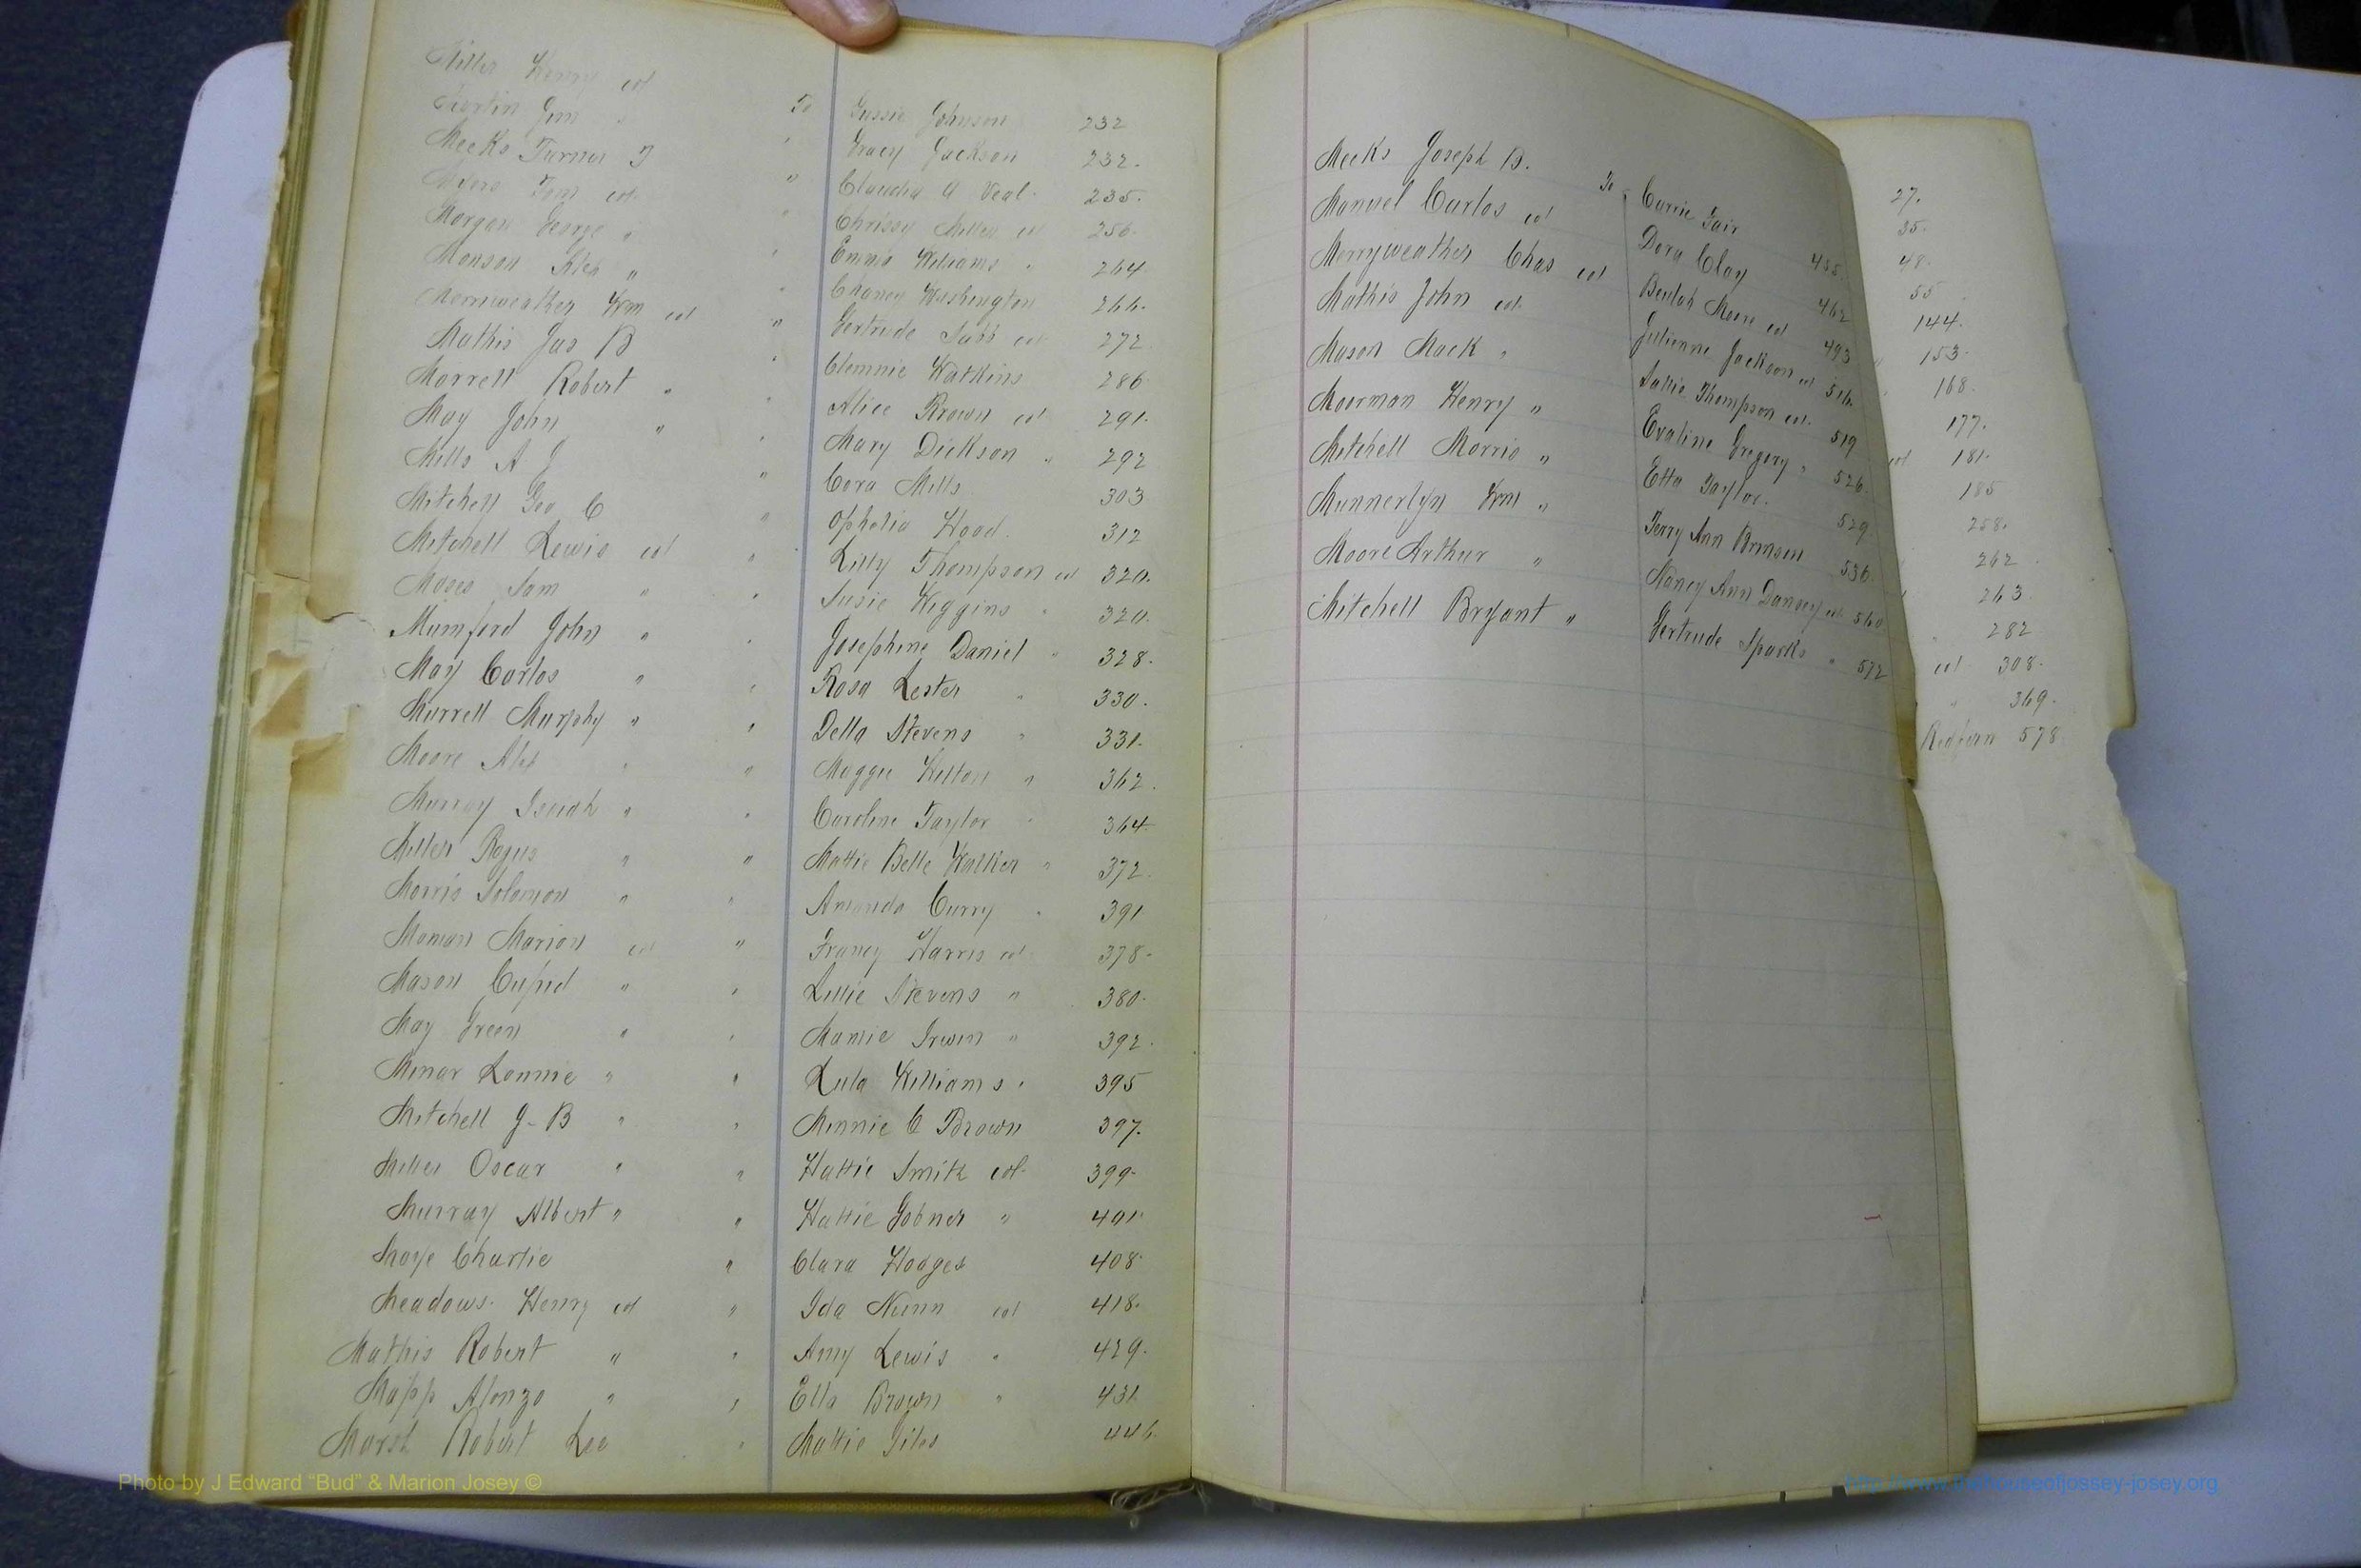 Miller Henry col To Gussie Johnson 232
Martin Jim " Gracy Jackson 232.
Meeks Turner T " Claudia A Veal 235.
Tom col " Chrissy Miller col 256.
Morgan George " " Emma Williams " 264
Monson " " Chaney Washington 266.
Merriweather Wm col " Gertrude col 272
Mathis Jas B " Clemnie Watkins 286
Morrell Robert " " Alice Brown col 291.
May John " " Mary Dickson " 292
Mills A J " Cora Mills 303
Mitchell Geo C " Ophelia Hood 312
Mitchell Lewis col " Lilly Thompson col 320.
Moses Sam " " Susie Wiggins " 320.
Mumford John " " Josephine Daniel " 328.
May Carlos " " Rosa Lester " 330.
Murrell Murphy " " Della Stevens " 331.
Moore Alex " " Maggie Wilton " 362.
Murray Isaiah " " Caroline Taylor " 364
Miller " " Mattie Belle Walker " 372.
Morris Solomon " " Amanda Curry " 391
Moman Marion col " Francy Harris col 378.
Mason Cupid " " Lillie Stevens " 380.
May Green " " Mamie Irwin " 392.
Minar Lonnie " " Lula Williams " 395
Mitchell J-B " " Minnie C Brown 397.
Miller Oscar " " Hattie Smith col. 399.
Murray Albert " " Hattie " 401.
Moye Charlie " Clara Hodges 408
Meadows. Henry col " Ida Nunn col 418.
Mathis Robert " " Amy Lewis " 429.
Mapp Alonzo " " Ella Brown " 431
Marsh Robert Lee " Mattie Giles 446
Meeks Joseph B. To Carrie Fair 455.
Manuel Carlos col Dora Clay 462
Merryweather Chas col Beulah Moore col 493
Mathis John col. Julianne Jackson col 516.
Mason Mack " Sallie Thompson col. 519
Moorman Henry " Evaline Gregory " 526.
Mitchell Morris " Etta Taylor. 529
Munnerlyn Wm " Terry Ann 536.
Moore Arthur " Nancy Ann Dansey col 560
Mitchell Bryant " Gertrude Sparks " 572
27.
35.
48.
55
144.
153.
168.
177.
col 181.
185
258.
262
263
282
col 308.
" 369.
578
Photo by J Edward “Bud” & Marion Josey ©
http://www.thehouseofjossey-josey.org